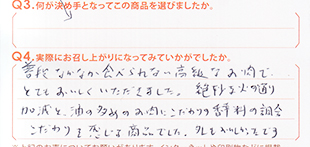 Q3.何が決め手となってこの商品を選びましたか。
Q4.実際にお召し上がりになってみていかがでしたか。
普段なかなか食べられない高級なお肉で
とてもおいしくいただきました。絶妙な火の通り
加減と、油の多めのお肉にこだわりの香料の調合
こだわりを感じる商品でした。タレもおいしいです